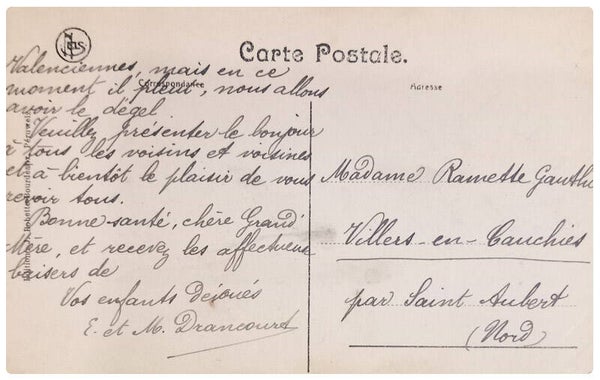 Carte Postale.
Correspondance
Adresse
Valenciennes, mais en ce
moment il pleut, nous allons
avoir le dégel.
Veuillez présenter le bonjour
à tous les voisins et voisines
et à bientôt le plaisir de vous
revoir tous.
Bonne santé, chère Grand'
Mère, et recevez les affectueux
baisers de
Vos enfants Dévoués
E. et M. Drancourt
Madame Ramette Gauthi
Villers-en-Cauchies
par Saint Aubert
(Nord)